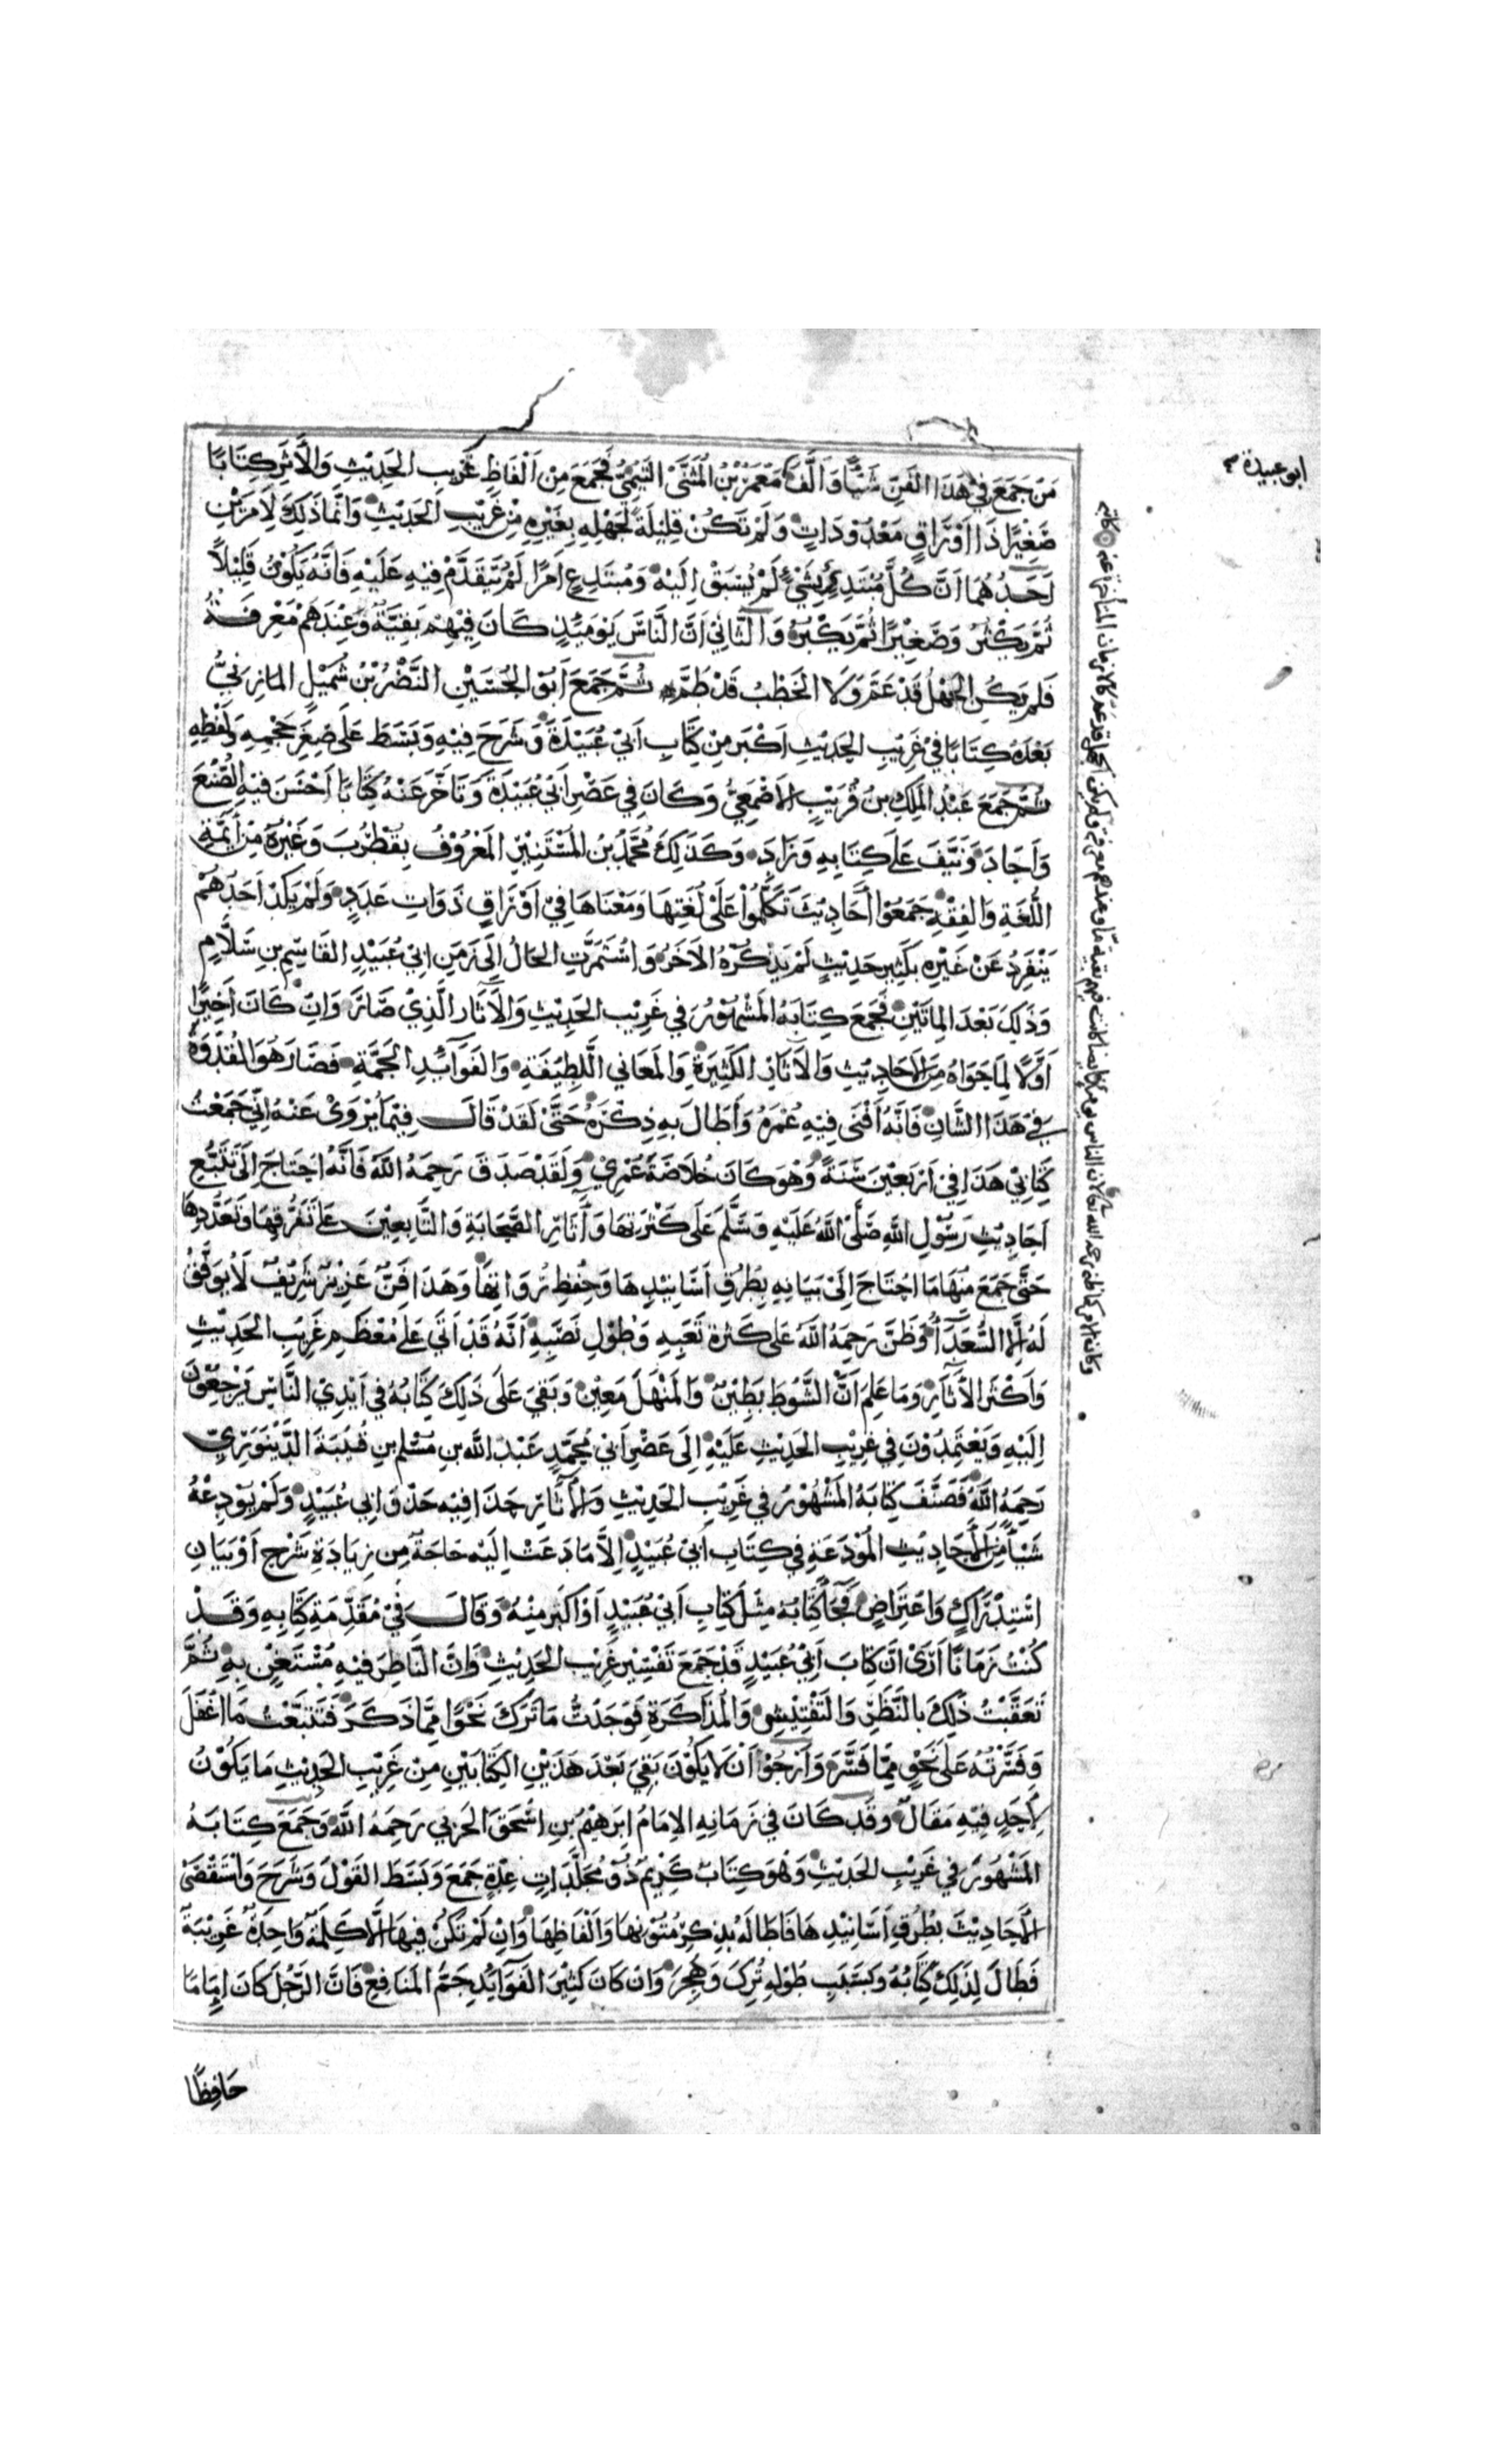 مَنْ جَمَعَ فِي هَذَا الفَنِّ شَيْئًا وَاَلَّفَ مَعْمَرُ بْنُ المُثَنَّى التَيْمِيُّ فَجَمَعَ مِنْ اَلْفَاظِ غَرِيبِ الحَدِيْثِ وَالأَثَرِ كِتَابًا
صَغِيْرًا ذَا اَوْرَاقٍ مَعْدُوْدَاتٍ وَلَمْ تَكُنْ قِلِيْلَةً لِجَهْلِهِ بِغَيْرِهِ مِنْ غَرِيْبِ الحَدِيْثِ وَاِنَّمَا ذَلِكَ لِاَمْرَيْنِ
اَحَدُهُمَا اَنَّ كُلَّ مُبْتَدِئٍ بِشَيْءٍ لَمْ يُسْبَقْ اِلَيْهِ وَمُبْتَدِعٍ اَمْرًا لَمْ يُتَقَدَّمْ فِيْهِ عَلَيْهِ فَاِنَّهُ يَكُوْنُ قَلِيْلاً
ثُمَّ يَكْثُرُ وَصَغِيْرًا ثُمَّ يَكْبُرُ وَالثَّانِيْ اَنَّ النَّاسَ يَوْمَئِذٍ كَانَ فِيْهِمْ بَقِيَّةٌ وَعِنْدَهُمْ مَعْرِفَةٌ
فَلَمْ يَكُنِ الجَهْلُ قَدْ عَمَّ وَلَا الخَطْبُ قَدْ طَمَّ ثُمَّ جَمَعَ اَبُوْ الحُسَيْنِ النَّضْرُ بْنُ شُمَيْلٍ المَازِنِيُّ
بَعْدَهُ كِتَابًا فِيْ غَرِيْبِ الحَدِيْثِ اَكْبَرَ مِنْ كِتَابِ اَبِيْ عُبَيْدَةَ وَشَرَحَ فِيْهِ وَبَسَطَ عَلَى صِغَرِ حَجْمِهِ وَلَفْظِهِ
ثُمَّ جَمَعَ عَبْدُ المَلِكِ بْنُ قُرَيْبٍ الاَصْمَعِيُّ وَكَانَ فِي عَصْرِ اَبِيْ عُبَيْدَةَ وَتَاَخَّرَ عَنْهُ كِتَابًا اَحْسَنَ فِيْهِ الصُّنْعَ
وَاَجَادَ وَنَيَّفَ عَلَى كِتَابِهِ وَزَادَ وَكَذَلِكَ مُحَمَّدُ بْنُ المُسْتَنِيْرِ المَعْرُوْفُ بِقُطْرُبَ وَغَيْرُهُ مِنْ اَئِمَّةِ
اللُّغَةِ وَالفِقْهِ جَمَعُوْا اَحَادِيْثَ تَكَلَّمُوْا عَلَى لُغَتِهَا وَمَعْنَاهَا فِيْ اَوْرَاقٍ ذَوَاتِ عَدَدٍ وَلَمْ يَكَدْ اَحَدُهُمْ
يَنْفَرِدُ عَنْ غَيْرِهِ بِكَثِيْرِ حَدِيْثٍ لَمْ يَذْكُرْهُ الآخَرُ وَاسْتَمَرَّتِ الحَالُ اِلَى زَمَنِ ابِيْ عُبَيْدٍ القَاسِمِ بنِ سَلَّامٍ
وَذَلِكَ بَعْدَ المِائَتَيْنِ فَجَمَعَ كِتَابَهُ المَشْهُوْرَ فِي غَرِيْبِ الحَدِيْثِ وَالآثَارِ الَّذِيْ صَارَ وَاِنْ كَانَ اَخِيْرًا
اَوَّلًا لِمَا حَوَاهُ مِنَ الاَحَادِيْثِ وَالآثَارِ الكَثِيْرَةِ وَالمَعَانِي اللَّطِيْفَةِ وَالفَوَائِدِ الجَمَّةِ فَصَارَ هُوَ القُدْوَةُ
فِي هَذَا الشَّانِ فَاِنَّهُ اَفْنَى فِيْهِ عُمْرَهُ وَاَطَالَ بِهِ ذِكْرَهُ حَتَّى لَقَدْ قَالَ فِيْمَا يُرْوَى عَنْهُ اِنِّي جَمَعْتُ
كِتَابِيْ هَذَا فِيْ اَرْبَعِيْنَ سَنَةً وَهُوَ كَانَ خُلَاصَةَ عُمْرِيْ وَلَقَدْ صَدَقَ رَحِمَهُ اللّٰهُ فَاِنَّهُ احْتَاجَ اِلَى تَتَبُّعِ
اَحَادِيْثِ رَسُوْلِ اللّٰهِ صَلَّى اللّٰهُ عَلَيْهِ وَسَلَّمَ عَلَى كَثْرَتِهَا وَآثَارِ الصَّحَابَةِ وَالتَّابِعِيْنَ عَلَى تَفَرُّقِهَا وَتَعَدُّدِهَا
حَتَّى جَمَعَ مِنْهَا مَا احْتَاجَ اِلَى بَيَانِهِ بِطُرُقِ اَسَانِيْدِهَا وَحِفْظِ رُوَاتِهَا وَهَذَا فَنٌّ عَزِيْزٌ شَرِيْفٌ لَا يُوَفَّقُ
لَهُ اِلَّا السُّعَدَآءُ وَظَنَّ رَحِمَهُ اللّٰهُ عَلَى كَثْرَةِ تَعَبِهِ وَطُوْلِ نَصَبِهِ اَنَّهُ قَدْ اَتَى عَلَى مُعْظَمِ غَرِيْبِ الحَدِيْثِ
وَاَكْثَرِ الآثَارِ وَمَا عَلِمَ اَنَّ الشَّوْطَ بَطِيْنٌ وَالمَنْهَلَ مَعِيْنٌ وَبَقِيَ عَلَى ذَلِكَ كِتَابُهُ فِي اَيْدِي النَّاسِ يَرْجِعُوْنَ
اِلَيْهِ وَيَعْتَمِدُوْنَ فِي غَرِيْبِ الحَدِيْثِ عَلَيْهِ اِلَى عَصْرِ اَبِيْ مُحَمَّدٍ عَبْدِ اللّٰهِ بنِ مُسْلِمِ بنِ قُتَيْبَةَ الدِّيْنَوَرِيِّ
رَحِمَهُ اللّٰهُ فَصَنَّفَ كِتَابَهُ المَشْهُوْرَ فِي غَرِيْبِ الحَدِيْثِ وَالآثَارِ حَذَا فِيْهِ حَذْوَ ابِي عُبَيْدٍ وَلَمْ يُوْدِعْهُ
شَيْأً مِنَ الاَحَادِيْثِ المُوْدَعَةِ فِي كِتَابِ اَبِيْ عُبَيْدٍ اِلَّا مَا دَعَتْ اِلَيْهِ حَاجَةٌ مِنْ زِيَادَةِ شَرْحٍ اَوْ بَيَانٍ
اسْتِدْرَاكٍ وَاعْتِرَاضٍ فَجَآءَ كِتَابُهُ مِثْلَ كِتَابِ اَبِيْ عُبَيْدٍ اَوْ اَكْبَرَ مِنْهُ وَقَالَ فِيْ مُقَدِّمَةِ كِتَابِهِ وَقَدْ
كُنْتُ زَمَانًا اَرَى اَنَّ كِتَابَ اَبِيْ عُبَيْدٍ قَدْ جَمَعَ تَفْسِيْرَ غَرِيْبِ الحَدِيْثِ وَاَنَّ النَّاظِرَ فِيْهِ مُسْتَغْنٍ بِهِ ثُمَّ
تَعَقَّبْتُ ذَلِكَ بِالنَّظَرِ وَالتَّفْتِيْشِ وَالمُذَاكَرَةِ فَوَجَدْتُ مَا تَرَكَ نَحْوًا مِمَّا ذَكَرَ فَتَتَبَّعْتُ مَا اَغْفَلَ
وَفَسَّرْتُهُ عَلَى نَحْوٍ مِمَّا فَسَّرَ وَاَرْجُوْ اَنْ لَا يَكُوْنَ بَقِيَ بَعْدَ هَذَيْنِ الكِتَابَيْنِ مِنْ غَرِيْبِ الحَدِيْثِ مَا يَكُوْنُ
لِاَحَدٍ فِيْهِ مَقَالٌ وَقَدْ كَانَ فِي زَمَانِهِ الاِمَامُ اِبْرَهِيْمُ بنِ اِسْحَقَ الحَرْبِيُ رَحِمَهُ اللّٰهُ وَجَمَعَ كِتَابَهُ
المَشْهُوْرَ فِي غَرِيْبِ الحَدِيْثِ وَهُوَ كِتَابٌ كَرِيْمٌ ذُوْ مُجَلَّدَاتٍ عِدَّةٍ جَمَعَ وَبَسَطَ القَوْلَ وَشَرَحَ وَاسْتَقْصَى
الاَحَادِيْثَ بِطُرُقِ اَسَانِيْدِهَا فَاَطَالَهُ بِذِكْرِ مُتُوْنِهَا وَاَلْفَاظِهَا وَاِنْ لَمْ تَكُنْ فِيْهَا اِلَّا كَلِمَةٌ وَاحِدَةٌ غَرِيْبَةٌ
فَطَالَ لِذَلِكَ كِتَابُهُ وَبِسَبَبِ طُوْلِهِ تُرِكَ وَهُجِرَ وَاِنْ كَانَ كَثِيْرَ الفَوَائِدِ جَمَّ المَنَافِعِ فَاِنَّ الرَّجُلَ كَانَ اِمَامًا
حَافِظًا
ابو عبيدة